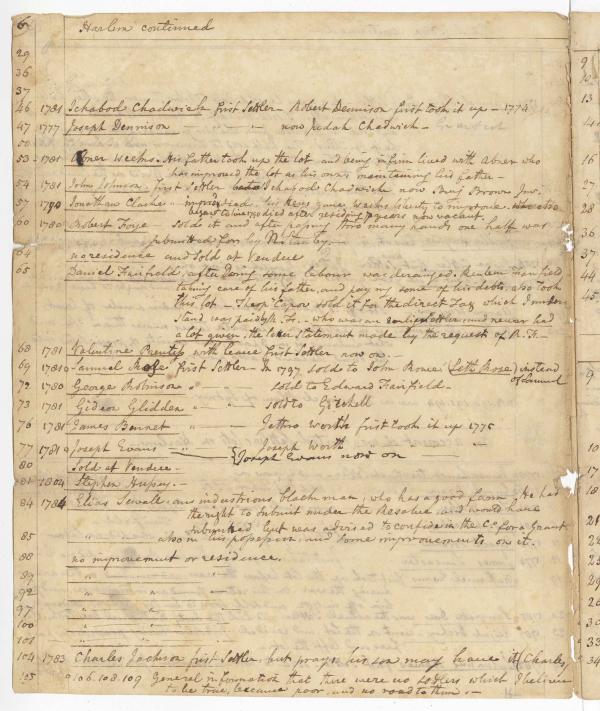 6 Harlem continued
29
36
37
46 1781 Ichabod Chadwick first settler - Robert Dennison first took it up - 1774
47 1777 Joseph Dennison " - " - " now Judah Chadwick -
50
53 - 1781 Abner Weeks. His father took up the lot and being infirm lived with Abner who
has improved the lot as his own maintaining his father -
54 1781 John Johnson, first settler Ichabod Chadwick now Brown Jun.
57 1790 Jonathan Clarke improved. his
died after residing 7 years now vacant.
60 1780 Robert Foye sold it and after passing thro many hands one half was
submitted for by
64 no residence and sold at Vendue
65 Daniel Fairfield, after doing some labour was deranged. Reuben Fairfield,
taking care of his father, and paying some of his debts, also took
this lot - sold it for the direct Tax which I under
stand was paid by R. F. - who was an settler and never had
a lot given, the statement made by the request of R. F. -
68 1781 Valentine Prentiss with leave first settler now on. -
69 1781 Samuel first settler - In 1797 sold to John (Seth Rose) instead
of Samuel
72 1780 George Robinson " sold to Edward Fairfield -
73 1781 Gideon Glidden " - " sold to Getchell
76 1781 James Bennet " - " Jethro Worth first took it up 1775
77 1781 Joseph Evans - Joseph Worth " -
{Joseph Evans now on -
80 Sold at Vendue -
81 1804 Stephen Hussey. -
84 1784 Elias Sewall, an industrious black man, who has a good farm. He has
the right to submit under the Resolve and would have
submitted but was advised to confide in the Cs. for a Grant
85 " " also in his possession, and some improvements on it.
88 no improvement or residence.
89 " " "
92 " " "
97 " " "
100 " " "
101 " " "
104 1783 Charles Jackson first settler, but prays his son may have it (Charles,
105 106. 108. 109 General information that there were no settlers which I believe
to be true, because poor, and no road to them. -
9
10
13
16
27
28
36
37
44
45
9
10
17
18
21
22
24
25
29
20
30
33
34